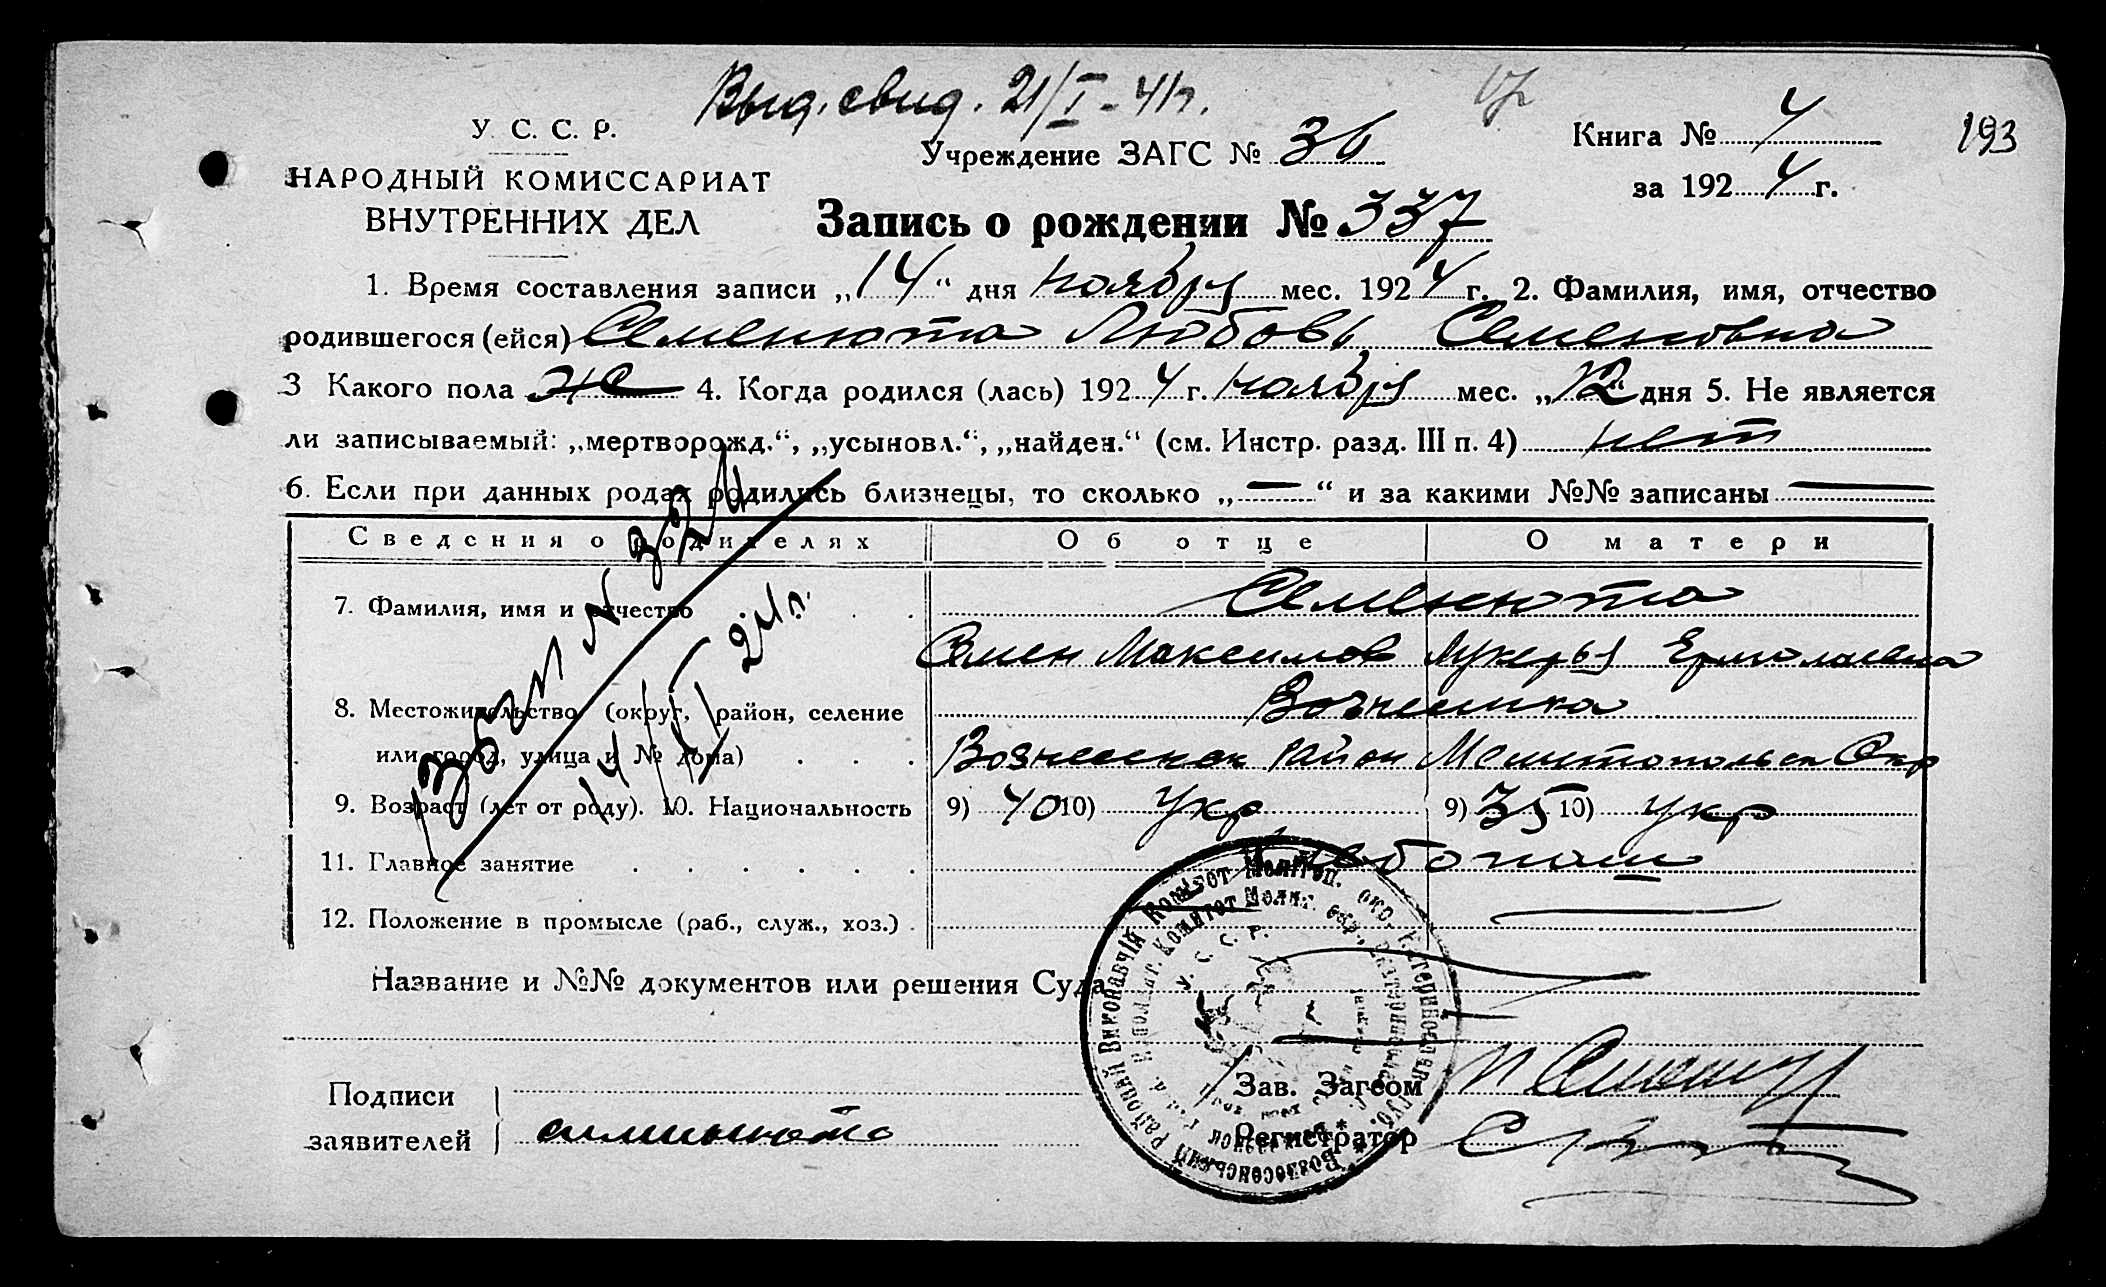 Выд. свид. 21/I-41г.
193
У. С. С. Р.
НАРОДНЫЙ КОМИССАРИАТ
ВНУТРЕННИХ ДЕЛ
Учреждение ЗАГС № 36
Книга № 4
за 1924 г.
Запись о рождении № 337
1. Время составления записи „14“ дня ноября мес. 1924 г. 2. Фамилия, имя, отчество
родившегося (ейся) Семенюта Любовь Семеновна
3 Какого пола же 4. Когда родился (лась) 1924 г. ноября мес. „12“ дня 5. Не является
ли записываемый: „мертворожд.“, „усыновл.“, „найден.“ (см. Инстр. разд. III п. 4) нет
6. Если при данных родах родились близнецы, то сколько „—“ и за какими №№ записаны —
Сведения о родителях Об отце О матери
7. Фамилия, имя и отчество Семенюта
Семен Максимов Лукерья Ермолаевна
8. Местожительство (округ, район, селение Вознесенка
или город, улица и № дома) Вознесенск район Мелитопольск Окр
9. Возраст (лет от роду). 10. Национальность 9) 40 10) Укр 9) 35 10) укр
11. Главное занятие хлебопаш
12. Положение в промысле (раб., служ., хоз.)
N 324
14/XI 24 г.
Название и №№ документов или решения Суда
У. С. С. Р.
Подписи
заявителей
Зав. Загсом
Регистратор